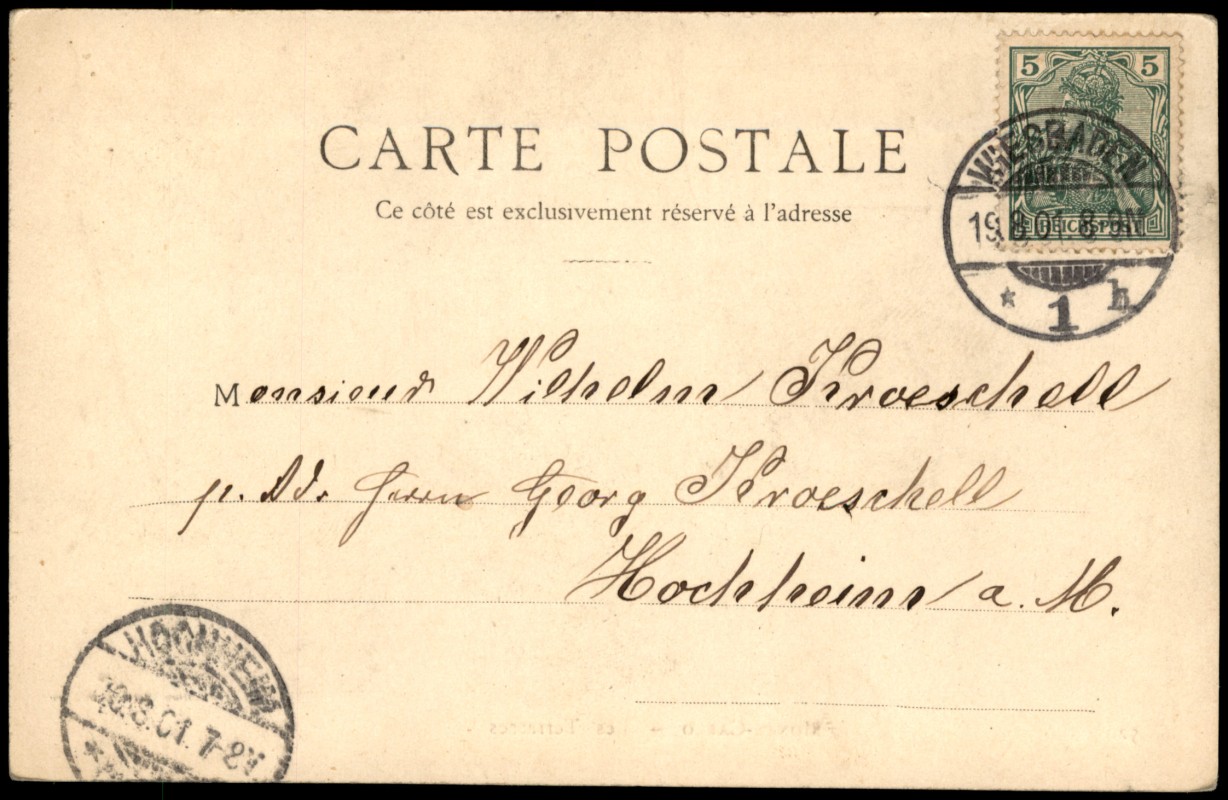 5 5
REICHSPOST
WIESBADEN
19.8.01. 8-9N
* 1 h
CARTE POSTALE
Ce côté est exclusivement réservé à l'adresse
Monsieur Wilhelm Kroeschell
p. Adr. Herrn Georg Kroeschell
Hochheim a. M.
HOCHHEIM
8.01. 7-8V